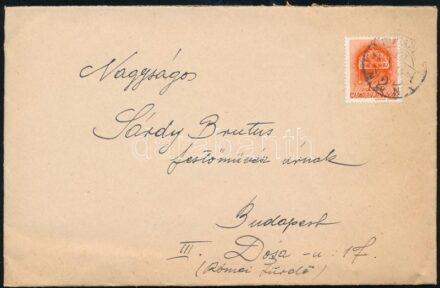 Nagyságos
Sárdy Brutus
festőművész úrnak
Budapest
III. Dósa-u. 17.
(Római Fürdő)
darabanth